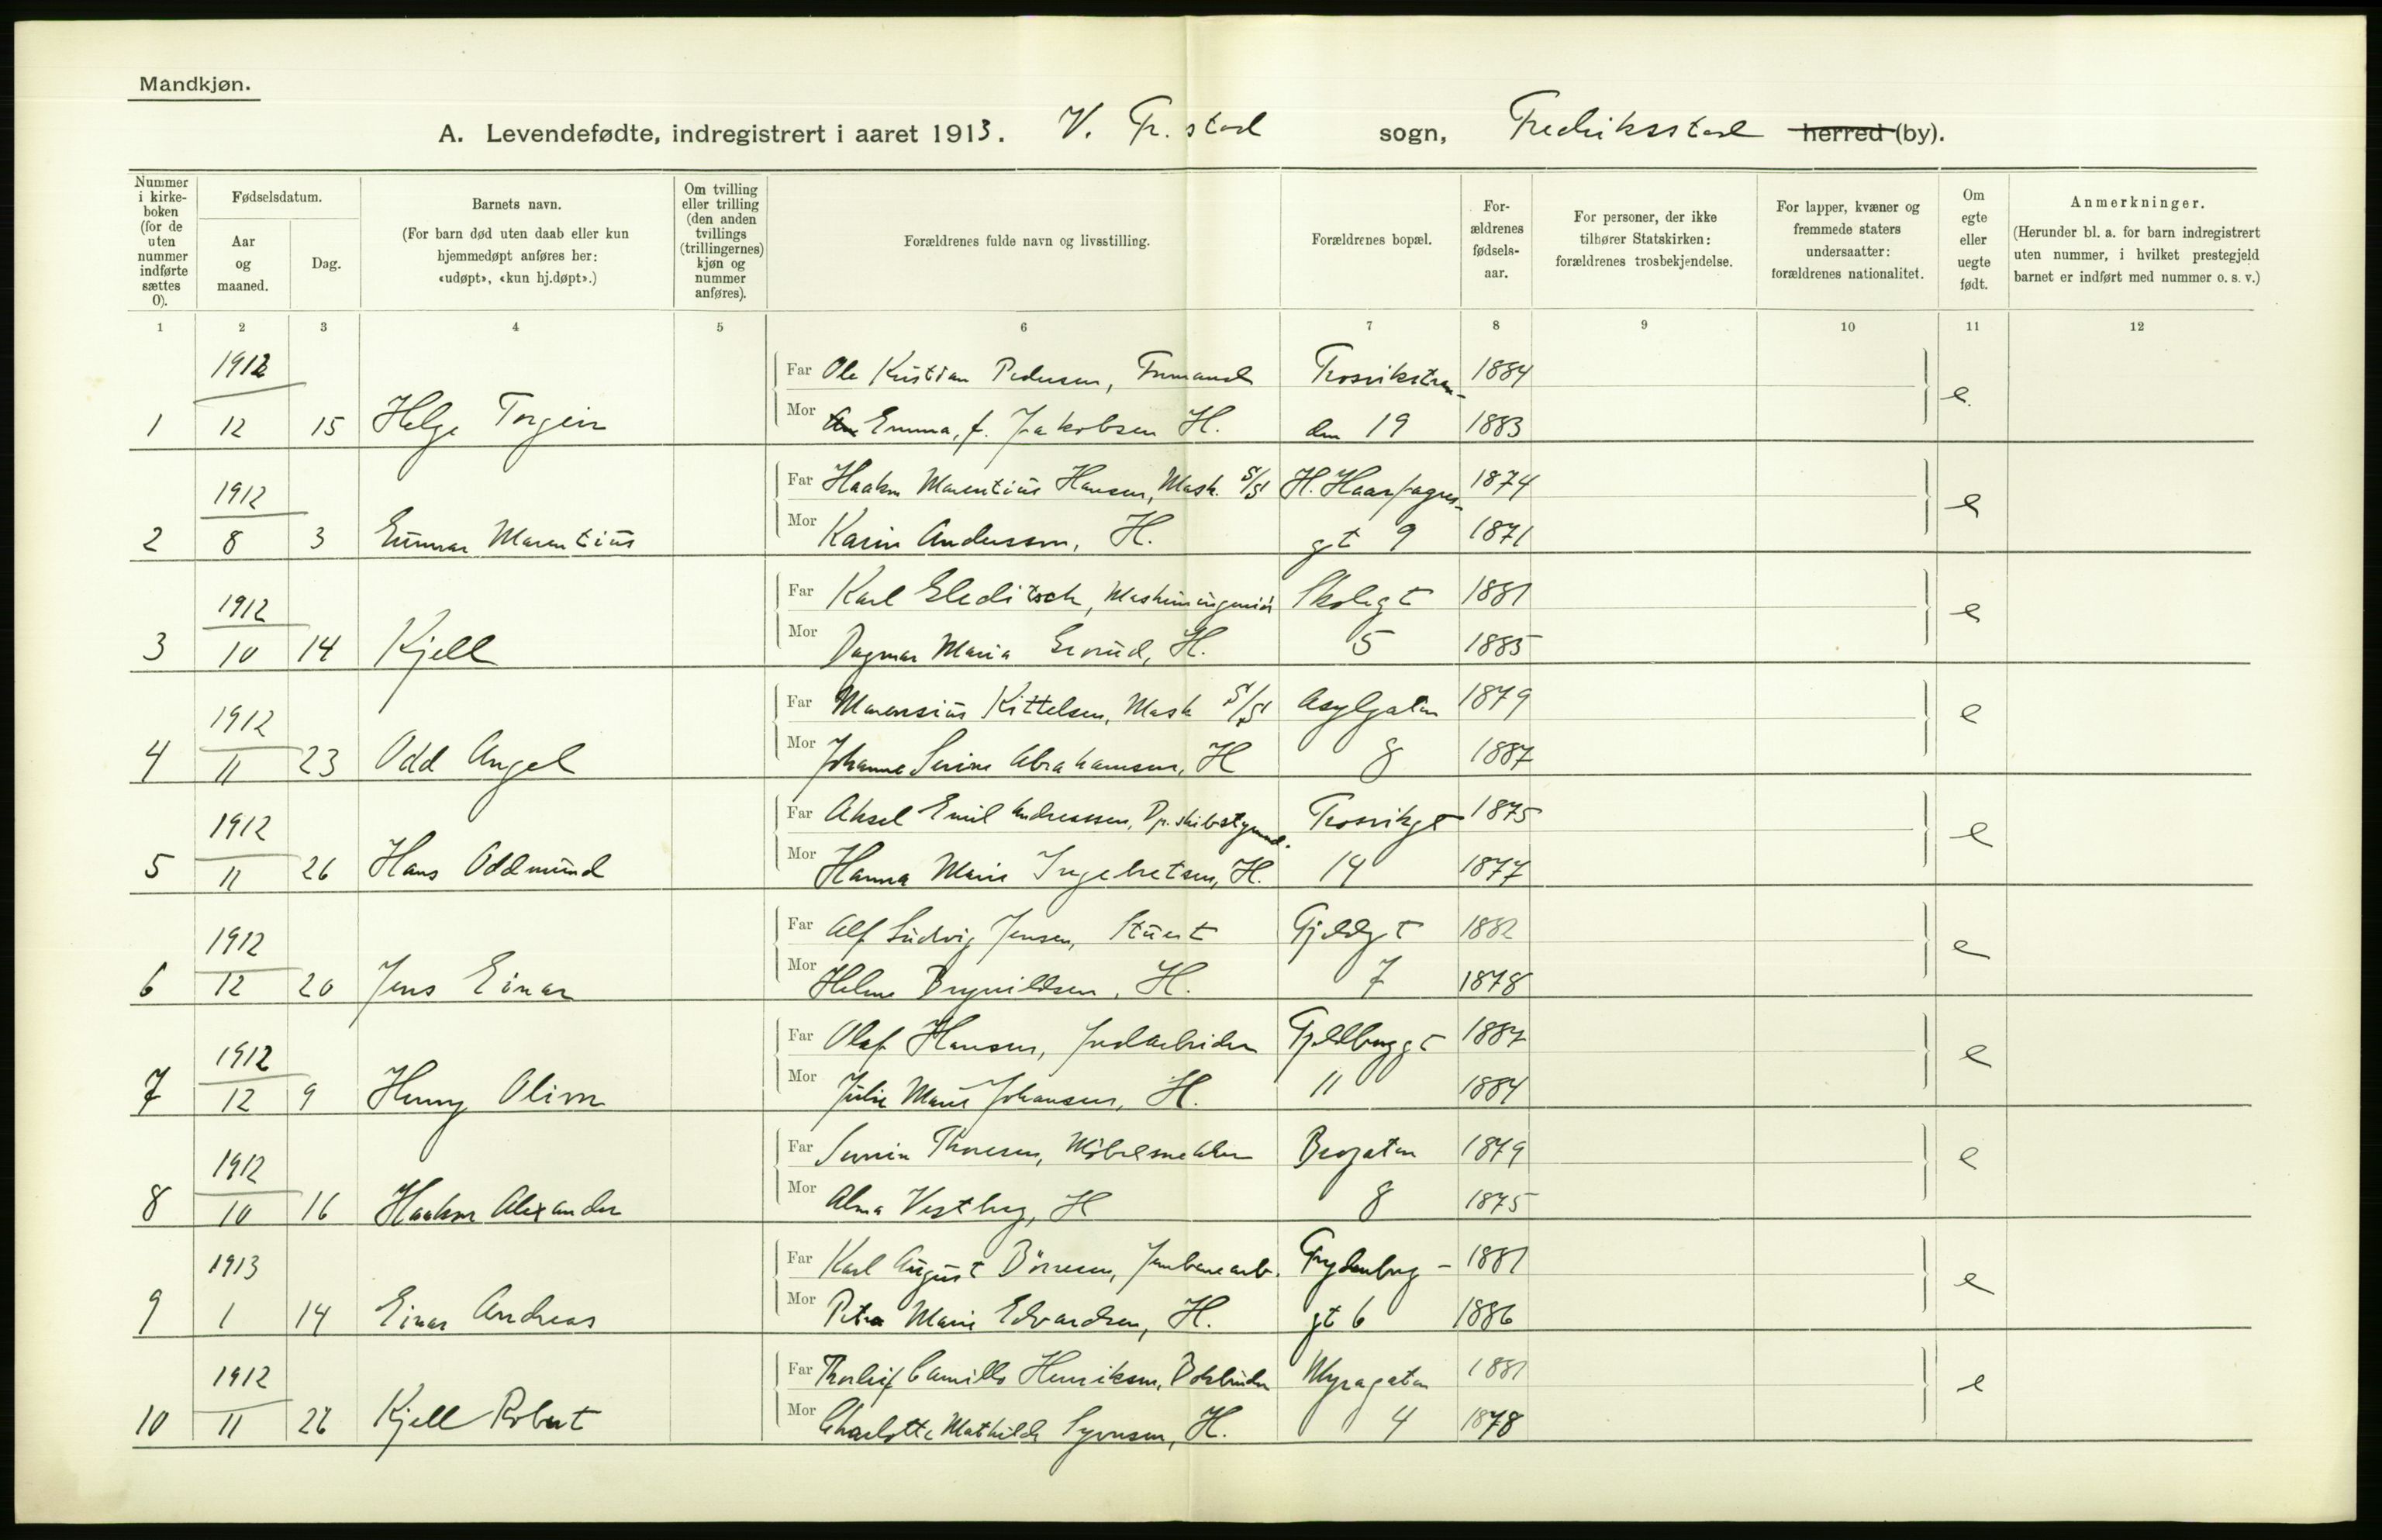 Mandkjøn.
A. Levendefødte, indregistrert i aaret 1913. V. Fr.stad sogn, Fredriksstad herred (by).
Nummer i kirkeboken (for de uten nummer indførte sættes 0).
Fødselsdatum.
Aar og maaned.
Dag.
Barnets navn.
(For barn død uten daab eller kun hjemmedøpt anføres her: «udøpt», «kun hj.døpt».)
Om tvilling eller trilling (den anden tvillings (trillingernes) kjøn og nummer anføres).
Forældrenes fulde navn og livsstilling.
Forældrenes bopæl.
Forældrenes fødselsaar.
For personer, der ikke tilhører Statskirken: forældrenes trosbekjendelse.
For lapper, kvæner og fremmede staters undersaatter: forældrenes nationalitet.
Om egte eller uegte født.
Anmerkninger.
(Herunder bl. a. for barn indregistrert uten nummer, i hvilket prestegjeld barnet er indført med nummer o. s. v.)
1 2 3 4 5 6 7 8 9 10 11 12
1912 Far Ole Kristian Pedersen, Trosvikstran- 1884 e.
1 12 15 Helge Torgeir Mor Emma, f. Jakobsen H. den 19 1883
1912 Far Haakon Marentius Hansen, Mask. S/S H. Haarfagres- 1874 e
2 8 3 Gunnar Marentius Mor Karin Andersson, H. gt 9 1871
1912 Far Karl Gleditsch, Maskiningeniør Skolegt 1881 e
3 10 14 Kjell Mor Dagmar Maria Grorud, H. 5 1885
1912 Far Marensius Kittelsen, Mask S/S Asylgaten 1879 e
4 11 23 Odd Angel Mor Johanne Serine Abrahamsen, H 8 1887
1912 Far Aksel Emil Andreassen, Dp.skibstyrmand. Trosvikgt 1875 e
5 11 26 Hans Oddmund Mor Hanna Marie Ingebretsen, H. 14 1877
1912 Far Alf Ludvig Jensen, Stuert Gjeldgt 1882 e
6 12 20 Jens Einar Mor Helene Brynildsen, H. 7 1878
1912 Far Olaf Hansen, Jordarbeider Fjeldberggt 1887 e
7 12 9 Henry Oliver Mor Julie Marie Johansen, H. 11 1884
1912 Far Severin Thoresen, Möbelsnekker Brogaten 1879 e
8 10 16 Haakon Alexander Mor Alma Vestberg, H 8 1875
1913 Far Karl August Börresen, Jernbanearb. Frydenberg- 1881 e
9 1 14 Einar Andreas Mor Petra Marie Edvardsen, H. gt 6 1886
1912 Far Thorleif Camillo Henriksen, Bokbinder Myragaten 1881 e
10 11 26 Kjell Robert Mor Charlotte Mathilde Syversen, H. 4 1878